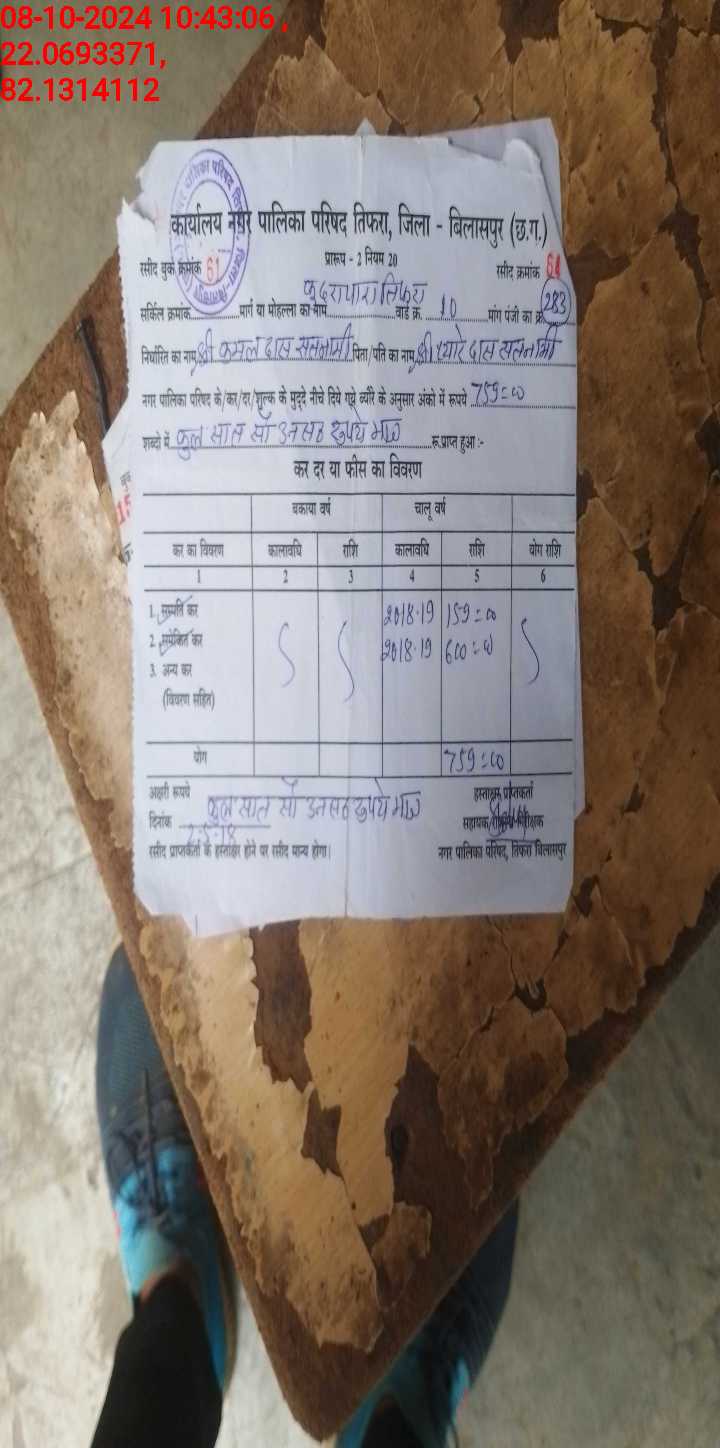 08-10-2024 10:43:06 ,
22.0693371,
82.1314112
कार्यालय नगर पालिका परिषद तिफरा, जिला - बिलासपुर (छ.ग.)
प्रारूप - 2 नियम 20
रसीद बुक क्रमांक 61 रसीद क्रमांक 61
कुदरापारा तिफरा
सर्किल क्रमांक मार्ग या मोहल्ला का नाम वार्ड क्र. 10 मांग पंजी का क्र. 283
निर्धारित का नाम श्री कमल दास सतनामी पिता/पति का नाम श्री प्यारे दास सतनामी
नगर पालिका परिषद के/कर/दर/शुल्क के मुद्दे नीचे दिये गये ब्यौरे के अनुसार अंको में रूपये 759=00
शब्दो में कुल सात सौ उनसठ रुपये मात्र रू प्राप्त हुआ :-
कर दर या फीस का विवरण
बकाया वर्ष चालू वर्ष
कर का विवरण कालावधि राशि कालावधि राशि योग राशि
1 2 3 4 5 6
1. सम्पति कर 2018-19 159=00
2. समेकित कर 2018-19 600=00
3. अन्य कर
(विवरण सहित)
योग 759=00
अक्षरी रूपये कुल सात सौ उनसठ रुपये मात्र हस्ताक्षर प्राप्तकर्ता
दिनांक 2-5-18 सहायक
रसीद प्राप्तकर्ता के हस्ताक्षर होने पर रसीद मान्य होगा। नगर पालिका परिषद, तिफरा बिलासपुर